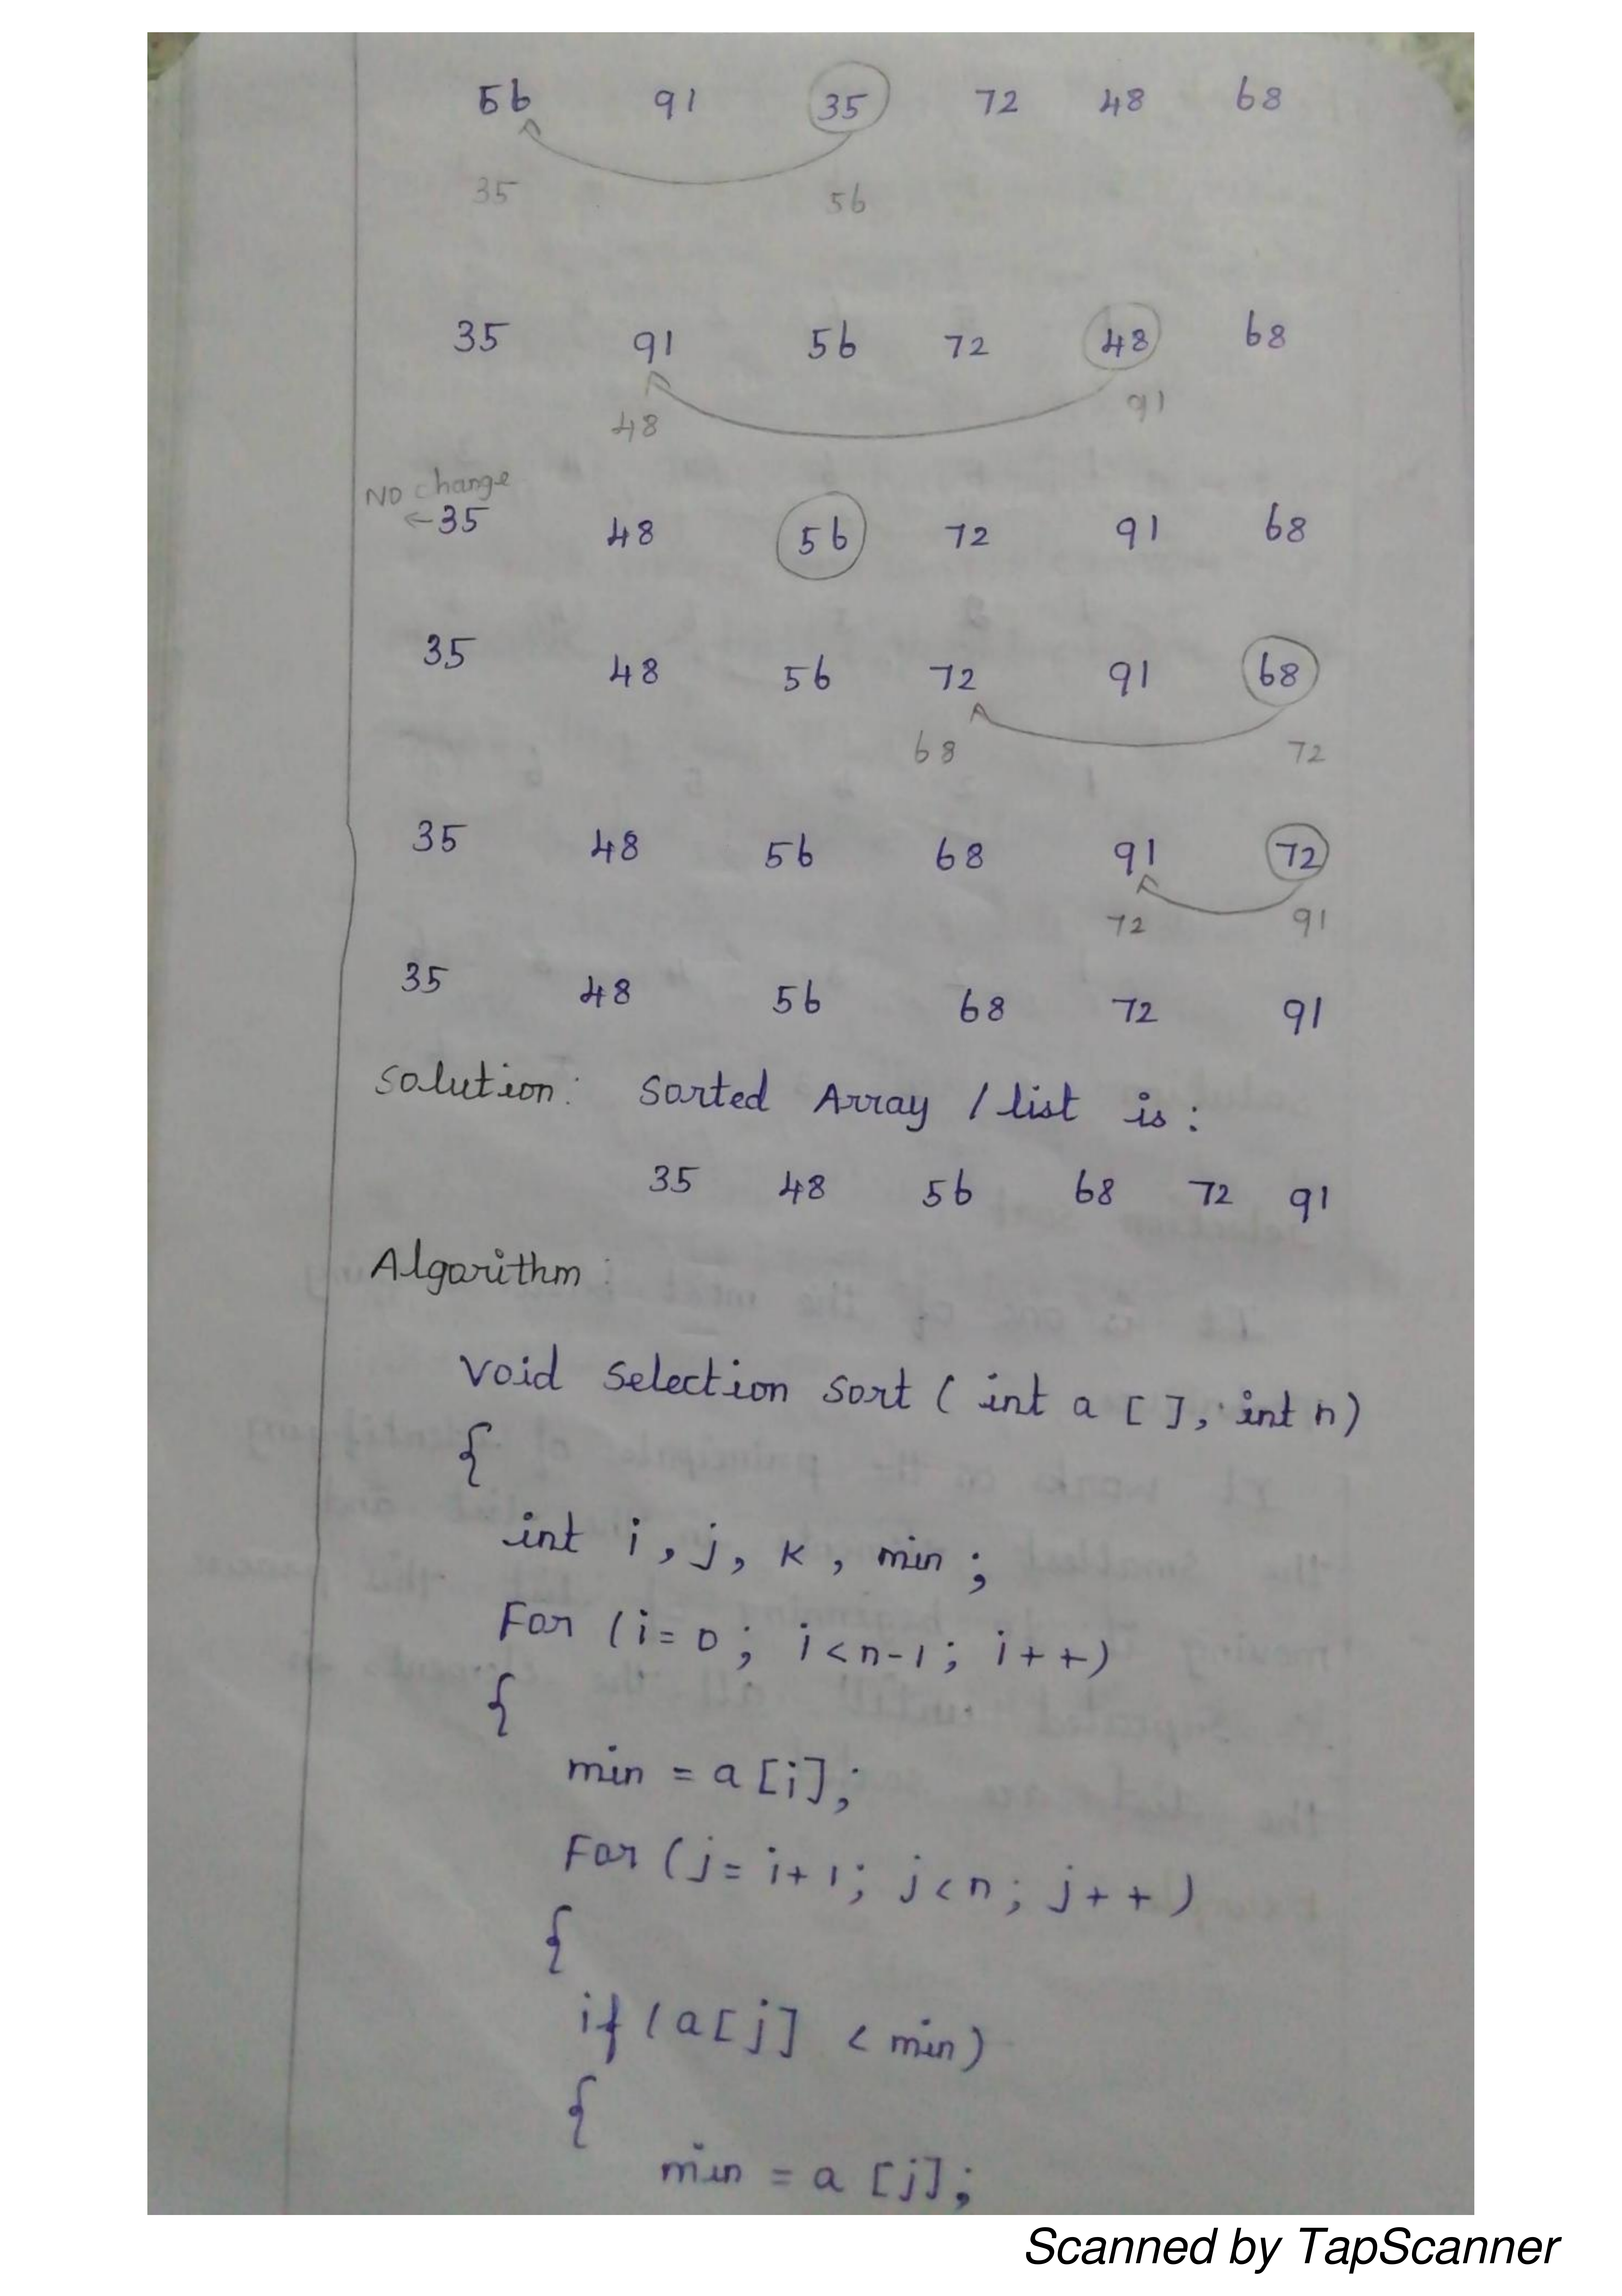 56 91 35 72 48 68
35 56
35 91 56 72 48 68
48 91
No change
←35 48 56 72 91 68
35 48 56 72 91 68
68 72
35 48 56 68 91 72
72 91
35 48 56 68 72 91
Solution: Sorted Array / list is:
35 48 56 68 72 91
Algorithm:
Void Selection Sort ( int a [ ], int n)
{
int i, j, k, min;
For (i=0; i<n-1; i++)
{
min = a[i];
For (j=i+1; j<n; j++)
{
if (a[j] < min)
{
min = a[j];
Scanned by TapScanner